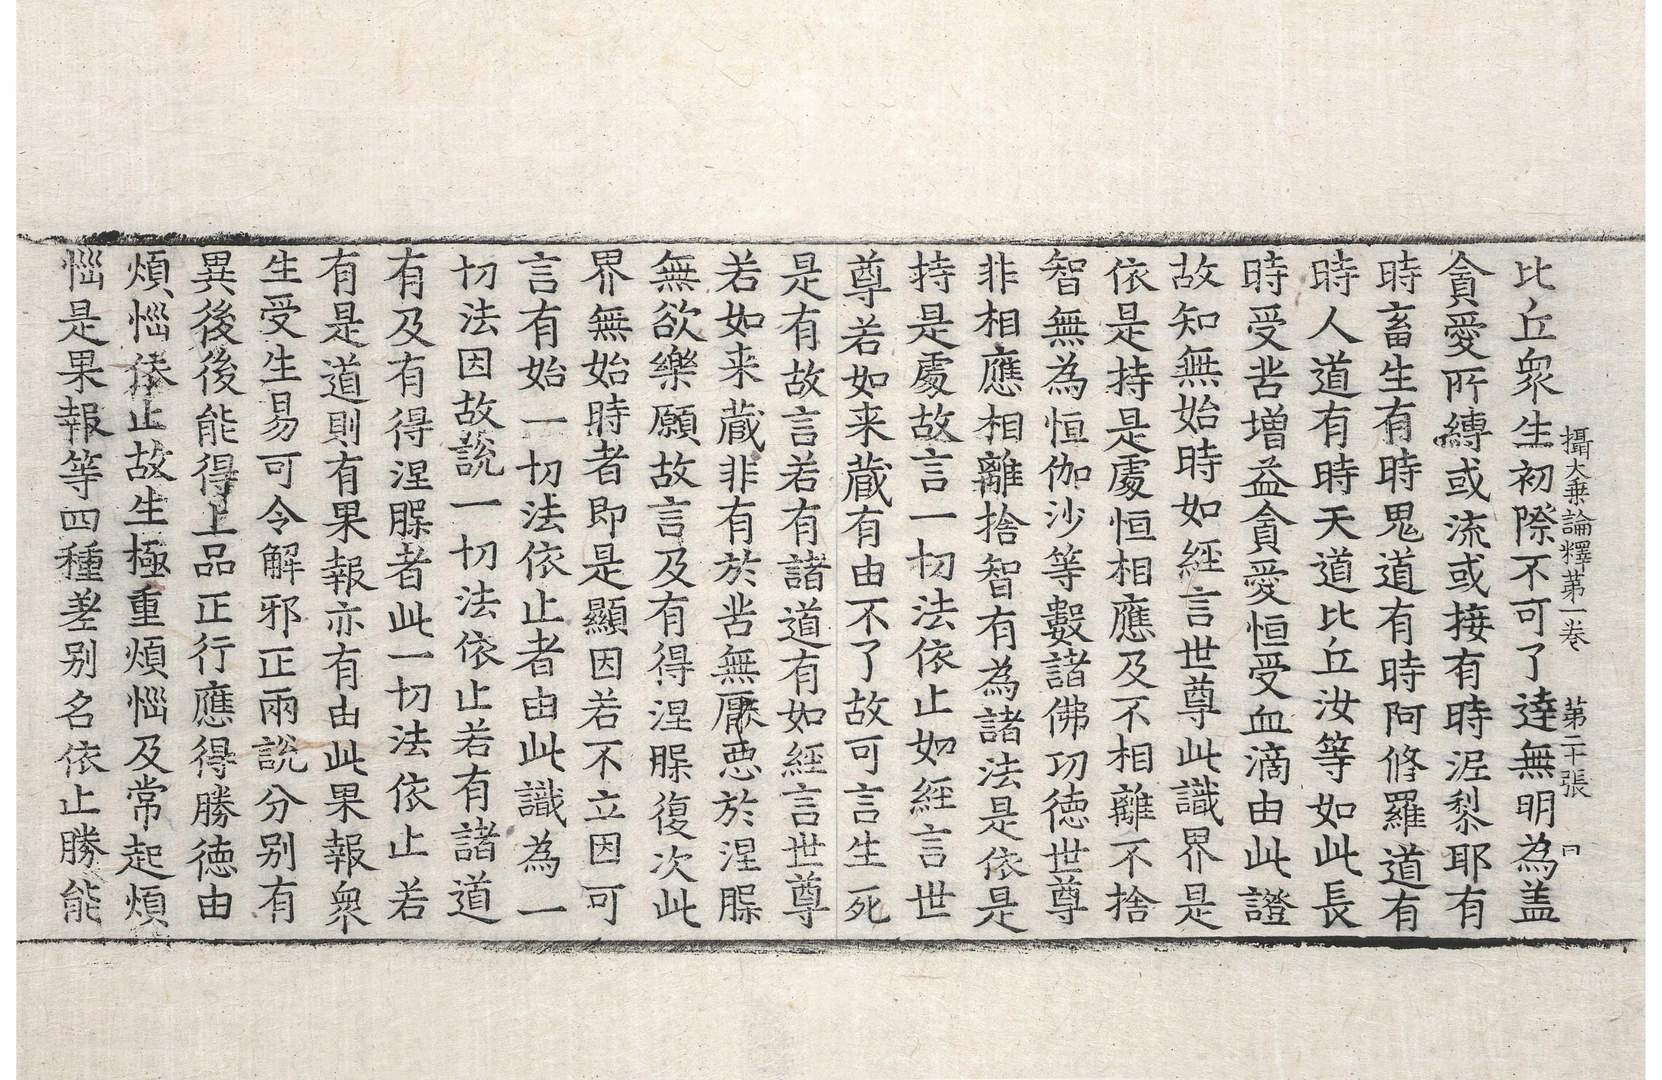 攝大乗論釋第一卷　第二十張　冂
比丘衆生初際不可了達無明為盖
貪愛所縛或流或接有時泥黎耶有
時畜生有時鬼道有時阿脩羅道有
時人道有時天道比丘汝等如此長
時受苦增益貪愛恒受血滴由此證
故知無始時如經言世尊此識界是
依是持是處恒相應及不相離不捨
智無為恒伽沙等數諸佛功德世尊
非相應相離捨智有為諸法是依是
持是處故言一切法依止如經言世
尊若如来蔵有由不了故可言生死
是有故言若有諸道有如經言世尊
若如来蔵非有於苦無厭惡於涅槃
無欲樂願故言及有得涅槃復次此
界無始時者即是顯因若不立因可
言有始一切法依止者由此識為一
切法因故說一切法依止若有諸道
有及有得涅槃者此一切法依止若
有是道則有果報亦有由此果報衆
生受生易可令解邪正兩說分别有
異後後能得上品正行應得勝徳由
煩惱依止故生極重煩惱及常起煩
惱是果報等四種差别名依止勝能